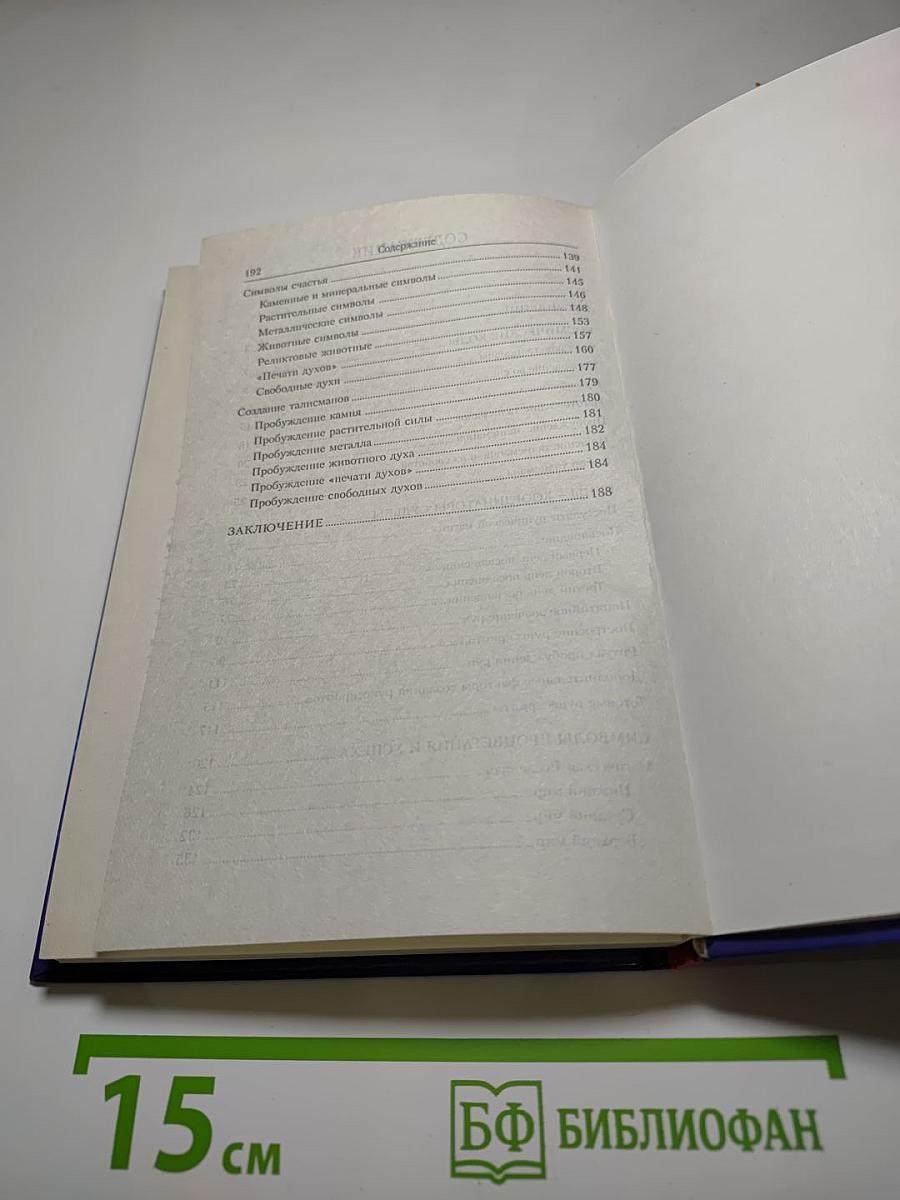 192 Содержание
Символы счастья 139
Каменные и минеральные символы 141
Растительные символы 145
Металлические символы 146
Животные символы 148
Реликтовые животные 153
«Печати духов» 157
Свободные духи 160
Создание талисманов 177
Пробуждение камня 179
Пробуждение растительной силы 180
Пробуждение металла 181
Пробуждение животного духа 182
Пробуждение «печати духов» 184
Пробуждение свободных духов 184
ЗАКЛЮЧЕНИЕ 188
15 см
БФ БИБЛИОФАН